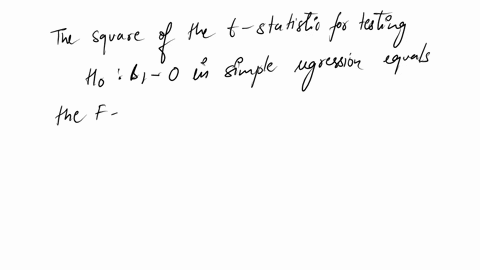 The square of the t-statistic for testing
H₀ : b₁ - 0 in simple regression equals
the F-